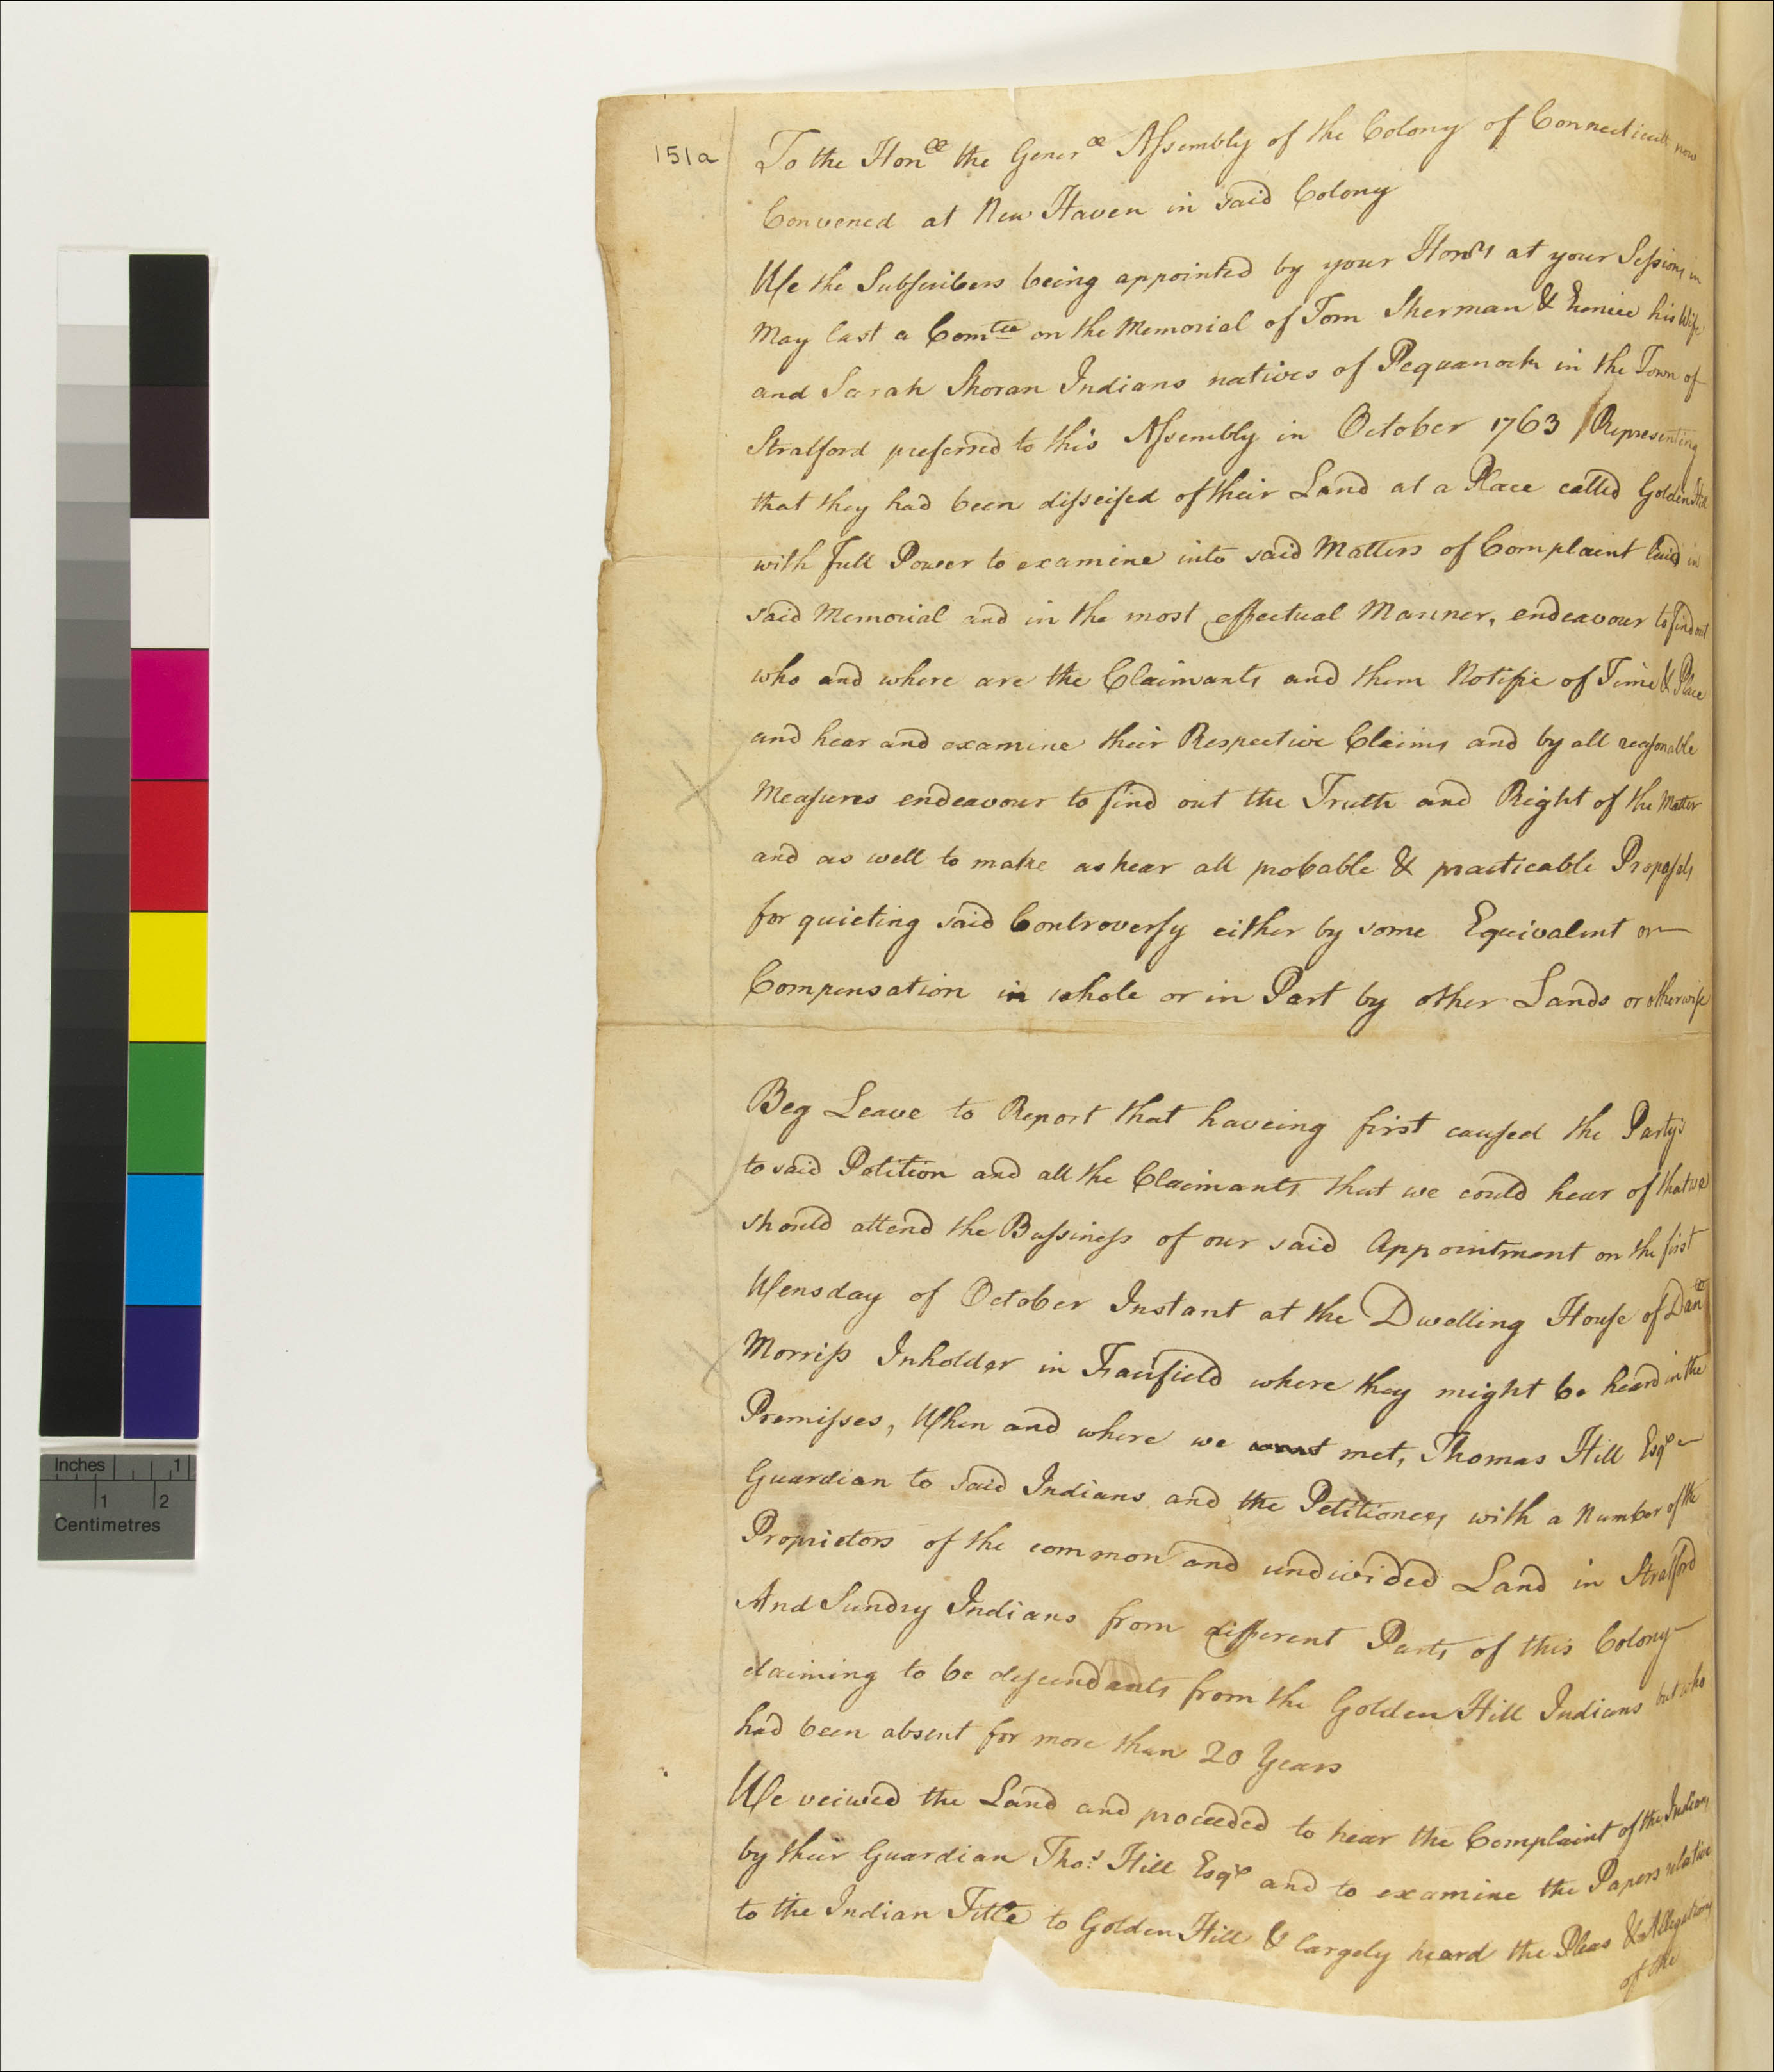 151a
To the Honll the Generll Assembly of the Colony of Connecticutt now
Convened at New Haven in said Colony
We the Subscribers being appointed by your Honrs at your Sessions in
May last a Comtee on the Memorial of Tom Sherman & Eunice his Wife
and Sarah Shoran Indians natives of Pequanock in the Town of
Stratford preferred to this Assembly in October 1763 Representing
that they had been disseised of their Land at a Place called Golden Hill
with full Power to examine into said Matters of Complaint laid in
said Memorial and in the most effectual Manner, endeavour to find out
who and where are the Claimants and them Notifie of Time & Place
and hear and examine their Respective Claims and by all reasonable
Measures endeavour to find out the Truth and Right of the Matter
and as well to make as hear all probable & practicable Proposals
for quieting said Controversy either by some Equivalent or
Compensation in whole or in Part by other Lands or otherwise
Beg Leave to Report that haveing first caused the Partys
to said Petition and all the Claimants that we could hear of that we
should attend the Bussiness of our said Appointment on the first
Wensday of October Instant at the Dwelling House of Danll
Morriss Inholder in Fairfield where they might be heard in the
Premisses, When and where we met, Thomas Hill Esqr
Guardian to said Indians and the Petitioners with a Number of the
Proprietors of the common and undivided Land in Stratford
And Sundry Indians from different Parts of this Colony
claiming to be descendants from the Golden Hill Indians but who
had been absent for more than 20 Years
We veiwed the Land and proceeded to hear the Complaint of the Indians
by their Guardian Thos Hill Esqr and to examine the Papers relative
to the Indian Title to Golden Hill & largely heard the Pleas & Allegations
of the
Inches 1
1 2
Centimetres